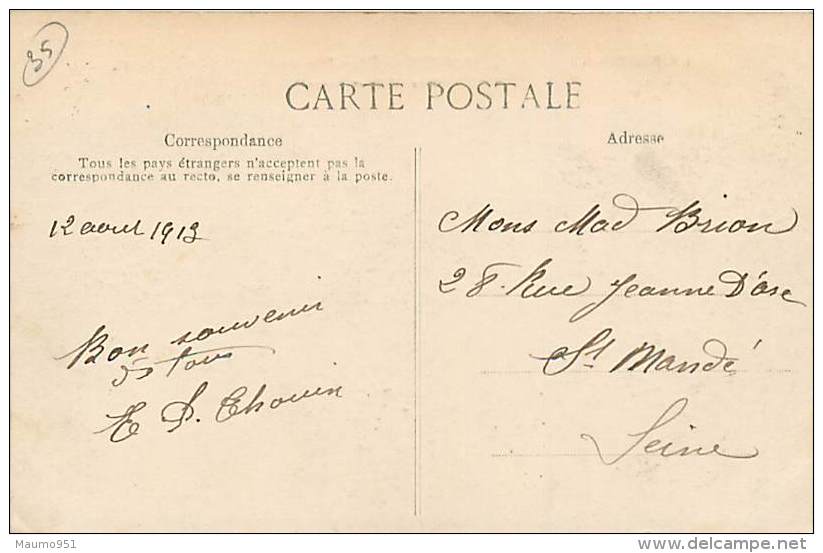 35
CARTE POSTALE
Correspondance
Tous les pays étrangers n'acceptent pas la
correspondance au recto, se renseigner à la poste.
12 avril 1913
Bon souvenir
à tous
E S. Thouin
Adresse
Mons Mad Brion
28. Rue Jeanne D'arc
St Mandé
Seine
Maumo951
delcampe.net